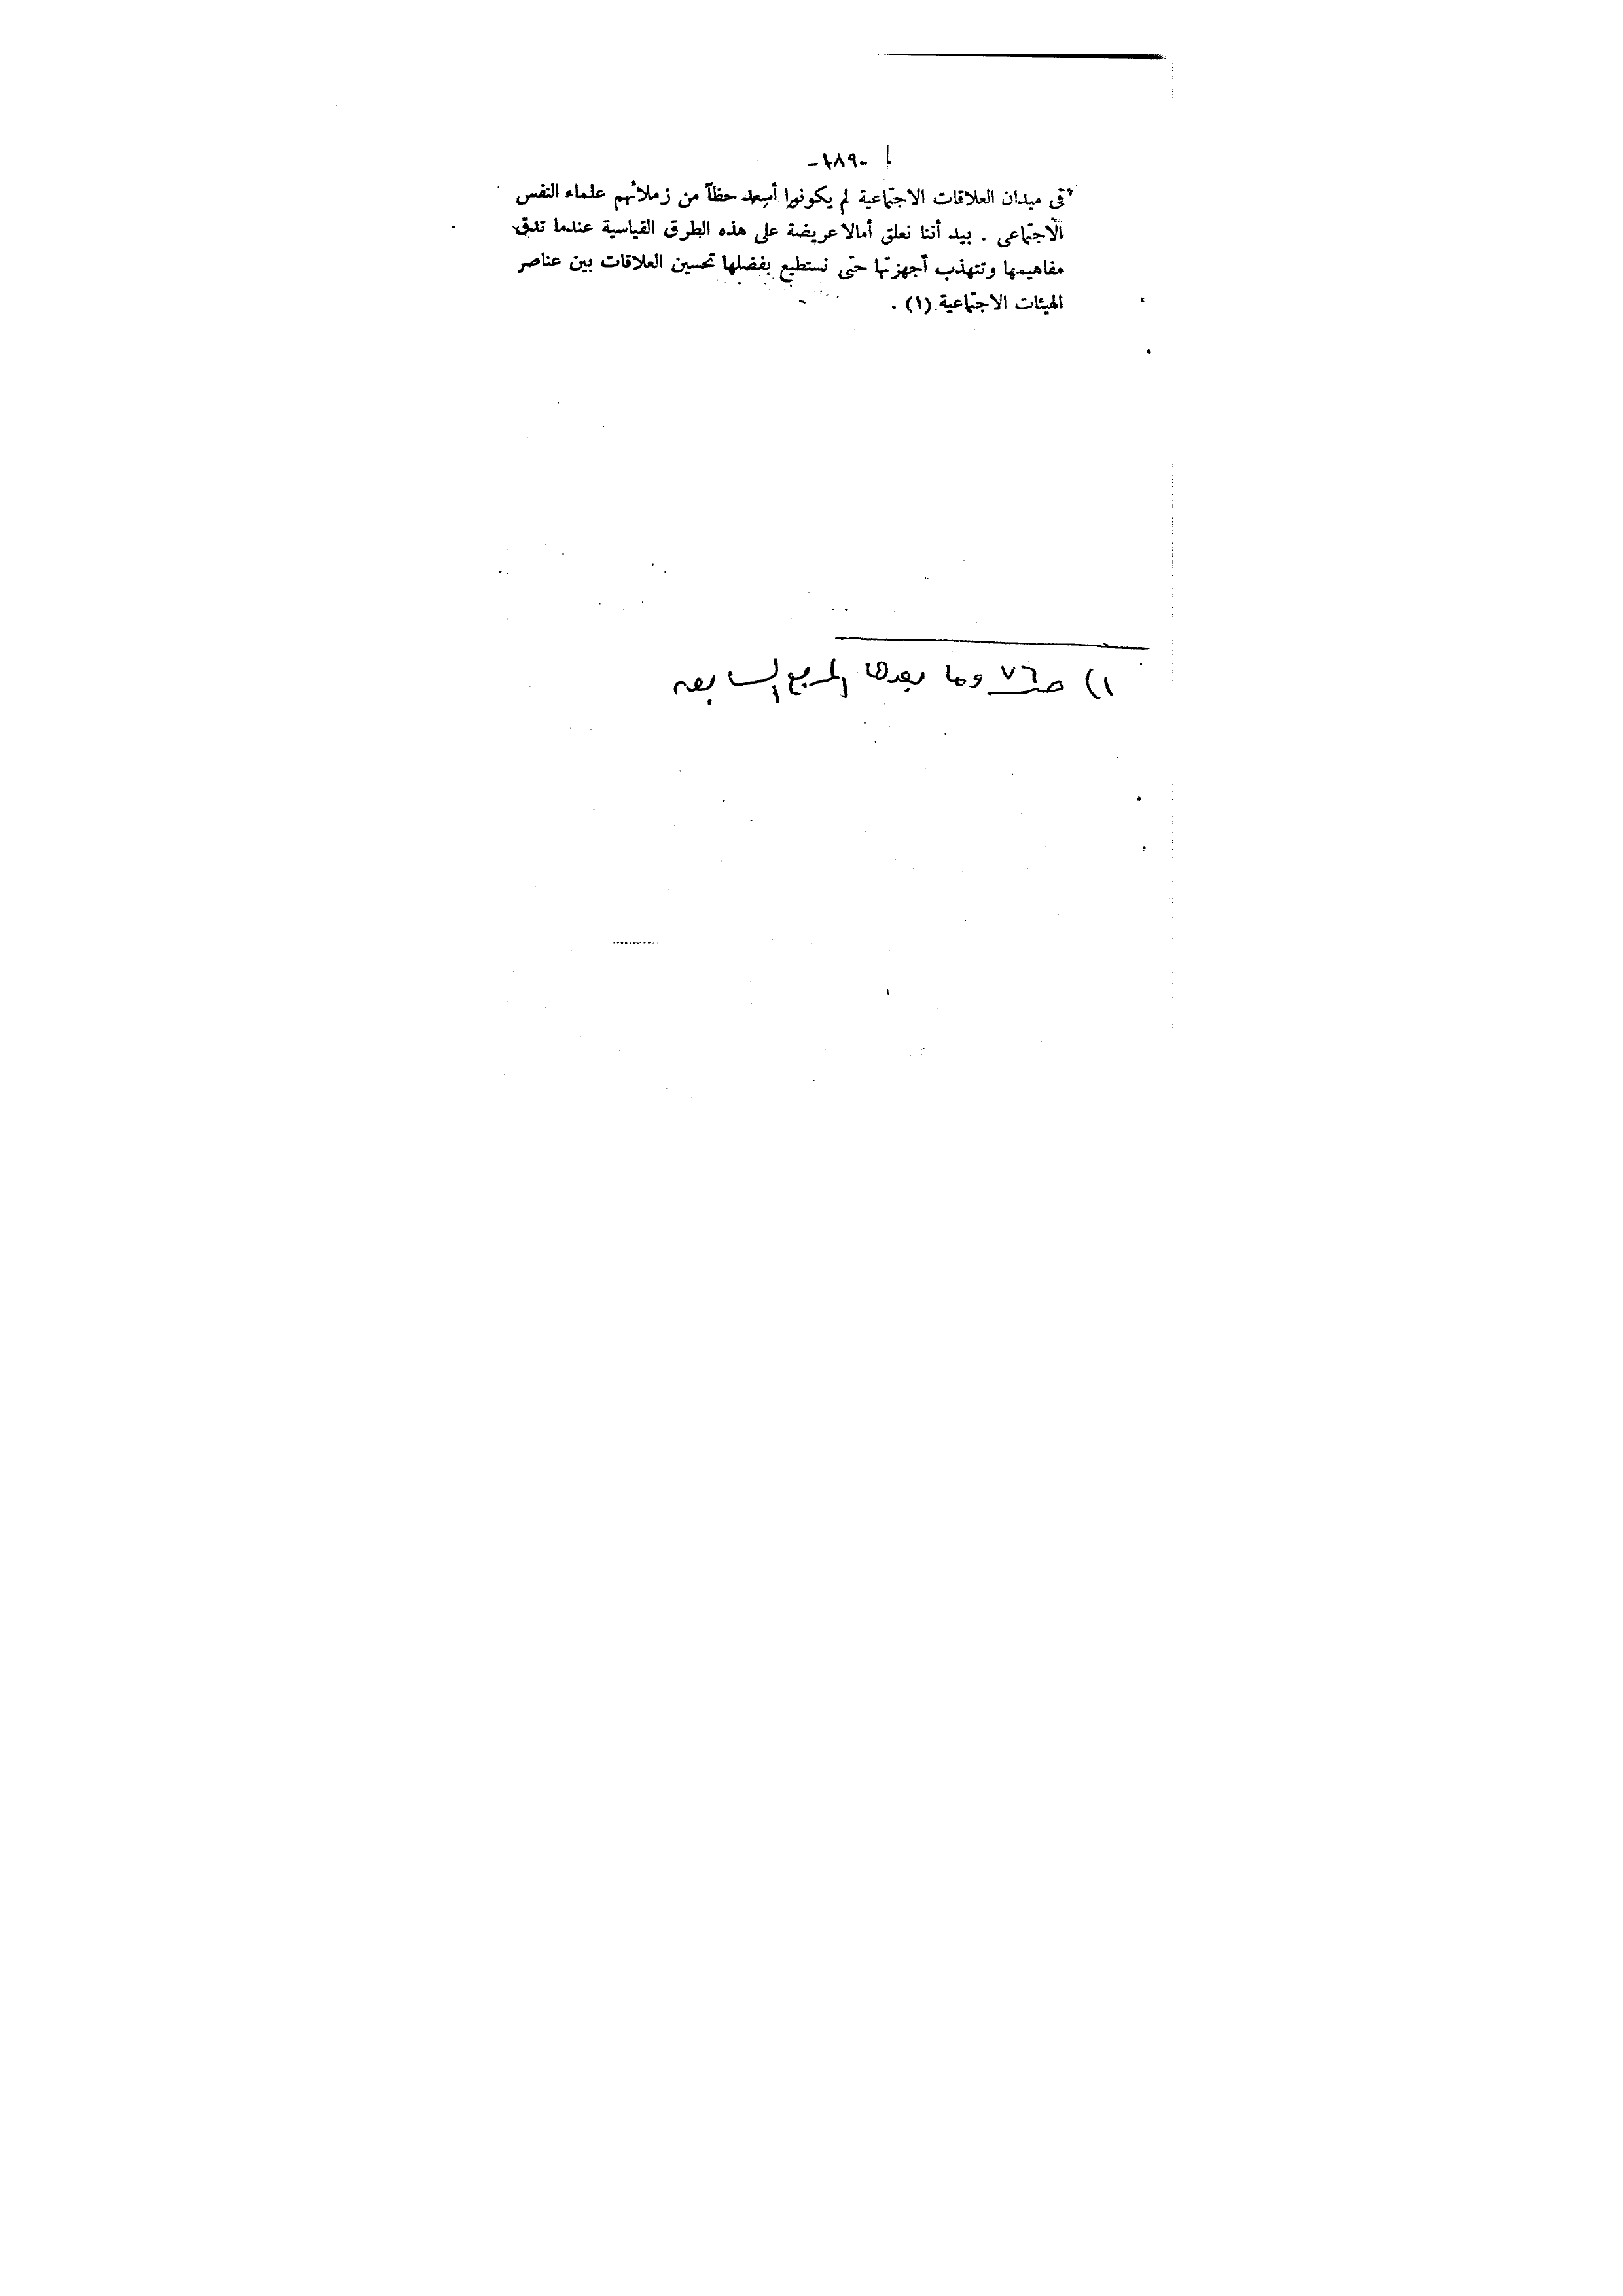 -١٨٩-
في ميدان العلاقات الاجتماعية لم يكونوا أسعد حظاً من زملائهم علماء النفس
الاجتماعى . بيد أننا نعلق أمالا عريضة على هذه الطرق القياسية عندما تدق
مفاهيمها وتتهذب أجهزتها حتى نستطيع بفضلها تحسين العلاقات بين عناصر
الهيئات الاجتماعية (١) .
١) صـ ٧٦ وما بعدها المرجع السابق